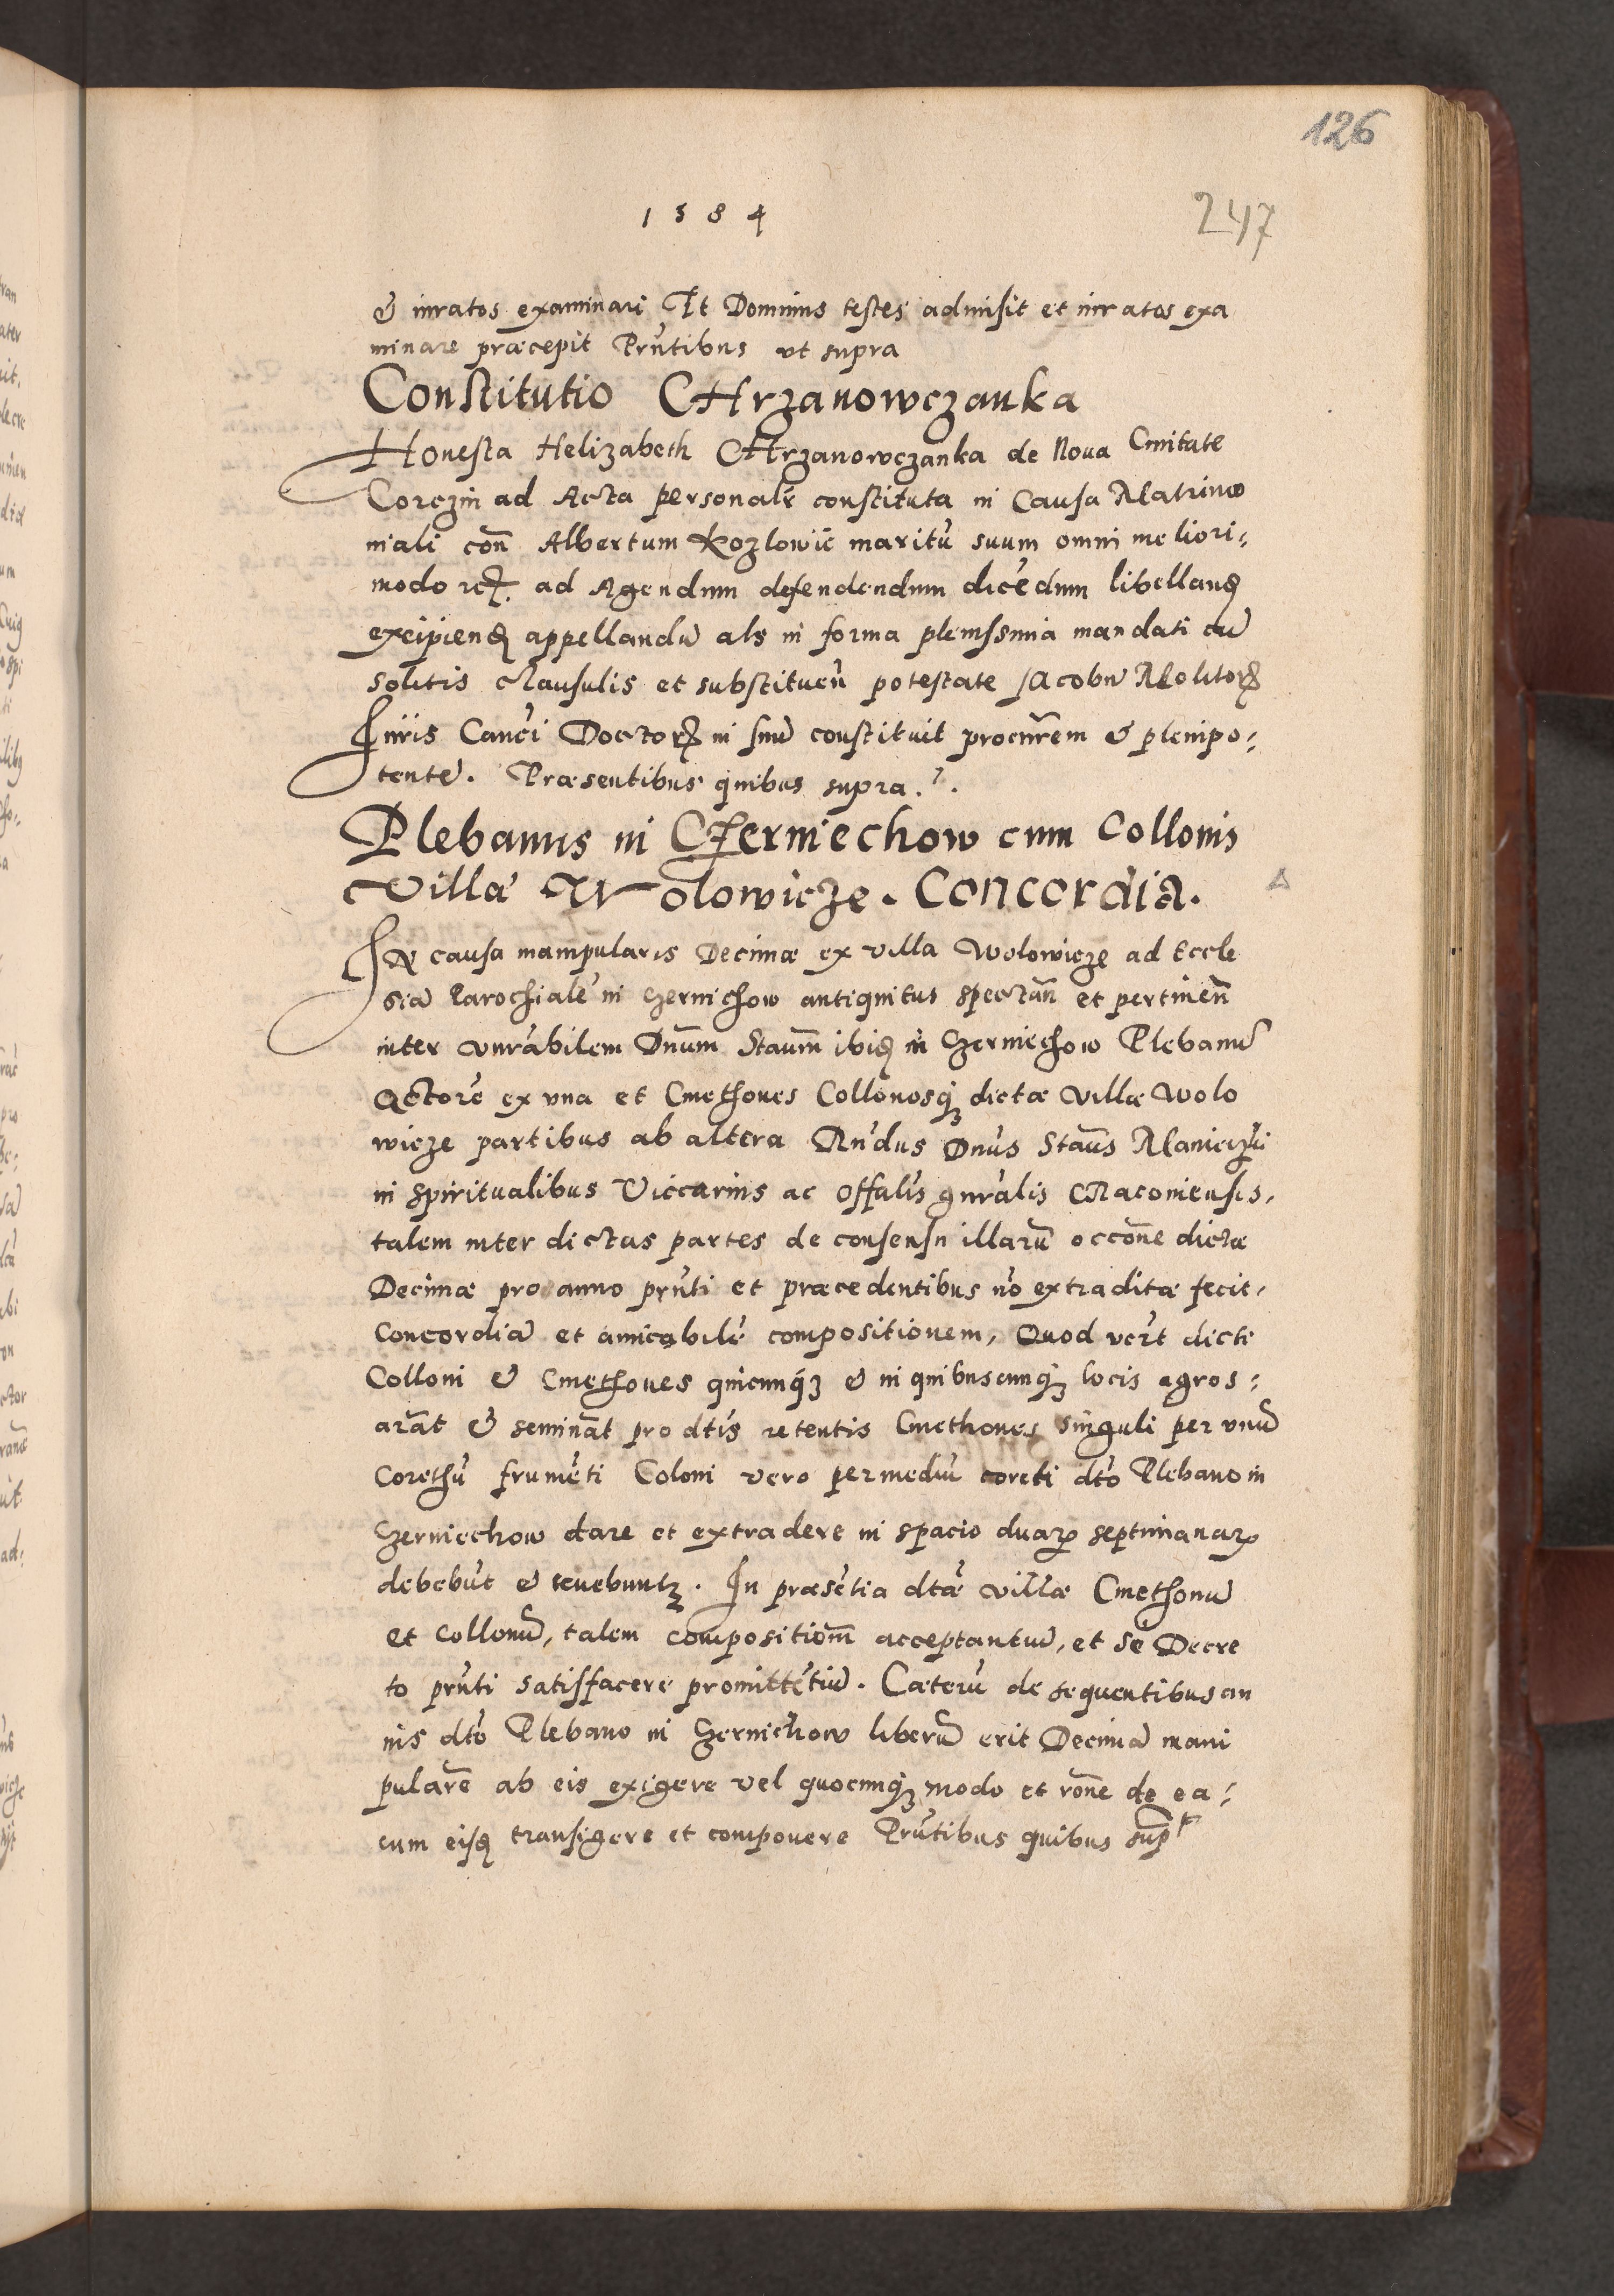 126
1584
247
& iuratos examinari Et Dominus testes admisit et iuratos exa
minare præcepit Prñtibus vt supra
Constitutio CHrzanowczanka
Honesta Helizabeth CHrzanowczanka de Noua Ciuitate
Corczin ad Acta personalr̃ constituta in Causa Matrimo
niali con̄ Albertum Kozlowic maritū suum omni meliori:
modo etc. ad Agendum defendendum dicēdum libellanđ
excipienđ appellandū als in forma plenissima mandati cū
solitis clausulis et substituen̄ potestate Jacobū Molitorē
Iuris Canci Doctorē in suū constituit procurr̃em & plenipo:
tentē. Præsentibus quibus supra.
Plebanus in Czerniechow cum Collonis
Villæ Wolowicze. Concordia.
IN causa manipularis Decimæ ex villa Wolowicze ad Eccle
siā Parochialē in Czernichow antiquitus spectan̄ et pertinen̄
inter vnrabilem Dnūm Staum̄ ibiđ in Czerniechow Plebanū
Actorē ex vna et Cmethones Collonosq₃ dictæ villæ Wolo
wicze partibus ab altera Rn̄dus Dn̄us Staūs
in spiritualibus Viccarius ac Offalis gn̄ralis Cracouiensis,
talem inter dictas partes de consensu illarū occōne dictæ
Decimæ pro anno prn̄ti et præcedentibus nō extraditæ fecit,
Concordiā et amicabilē compositionem, Quod vert dicti
Colloni & Cmethones quicunq₃ & in quibuscunq₃ locis agros:
arāt & semināt pro dtis retentis Cmethones singuli per vnū
Corethū frumēti Coloni vero per mediū coreti dtō Plebano in
Czerniechow dare et extradere in spacio duarꝝ septimanarꝝ
debebūt & tenebuntꝛ. In præsētia dtæ villæ Cmethonū
et Collonū, talem compositiōm acceptantiū, et se Decre
to prn̄ti satisfacere promittētiū. Cæterū de sequentibus an
nis dtō Plebano in Czernichow liberū erit Decimā mani
pularē ab eis exigere vel quocunq₃ modo et rōne de ea:
cum eisđ transigere et componere Prn̄tibus quibus supr